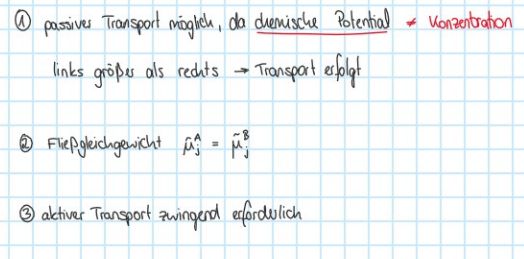 ① passiver Transport möglich, da chemische Potential ≠ Konzentration
links größer als rechts → Transport erfolgt
② Fließgleichgewicht μ̃ⱼᴬ = μ̃ⱼᴮ
③ aktiver Transport zwingend erforderlich